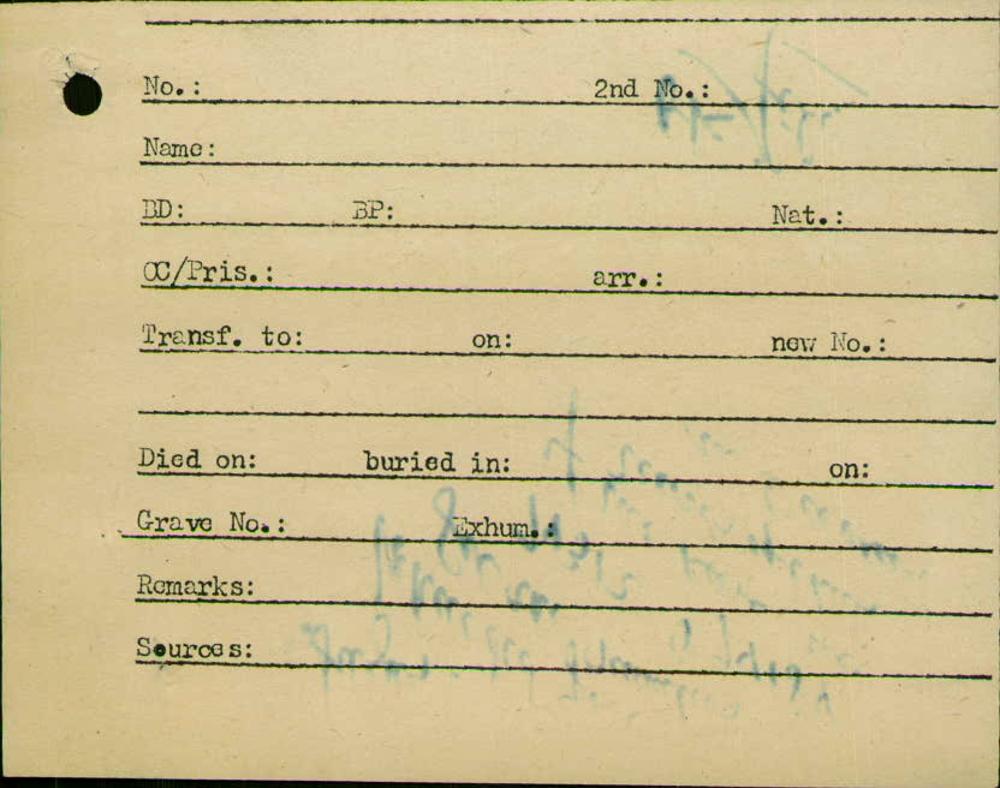 No.: 2nd No.:
Name:
BD: BP: Nat.:
CC/Pris.: arr.:
Transf. to: on: new No.:
Died on: buried in: on:
Grave No.: Exhum.:
Remarks:
Sources: